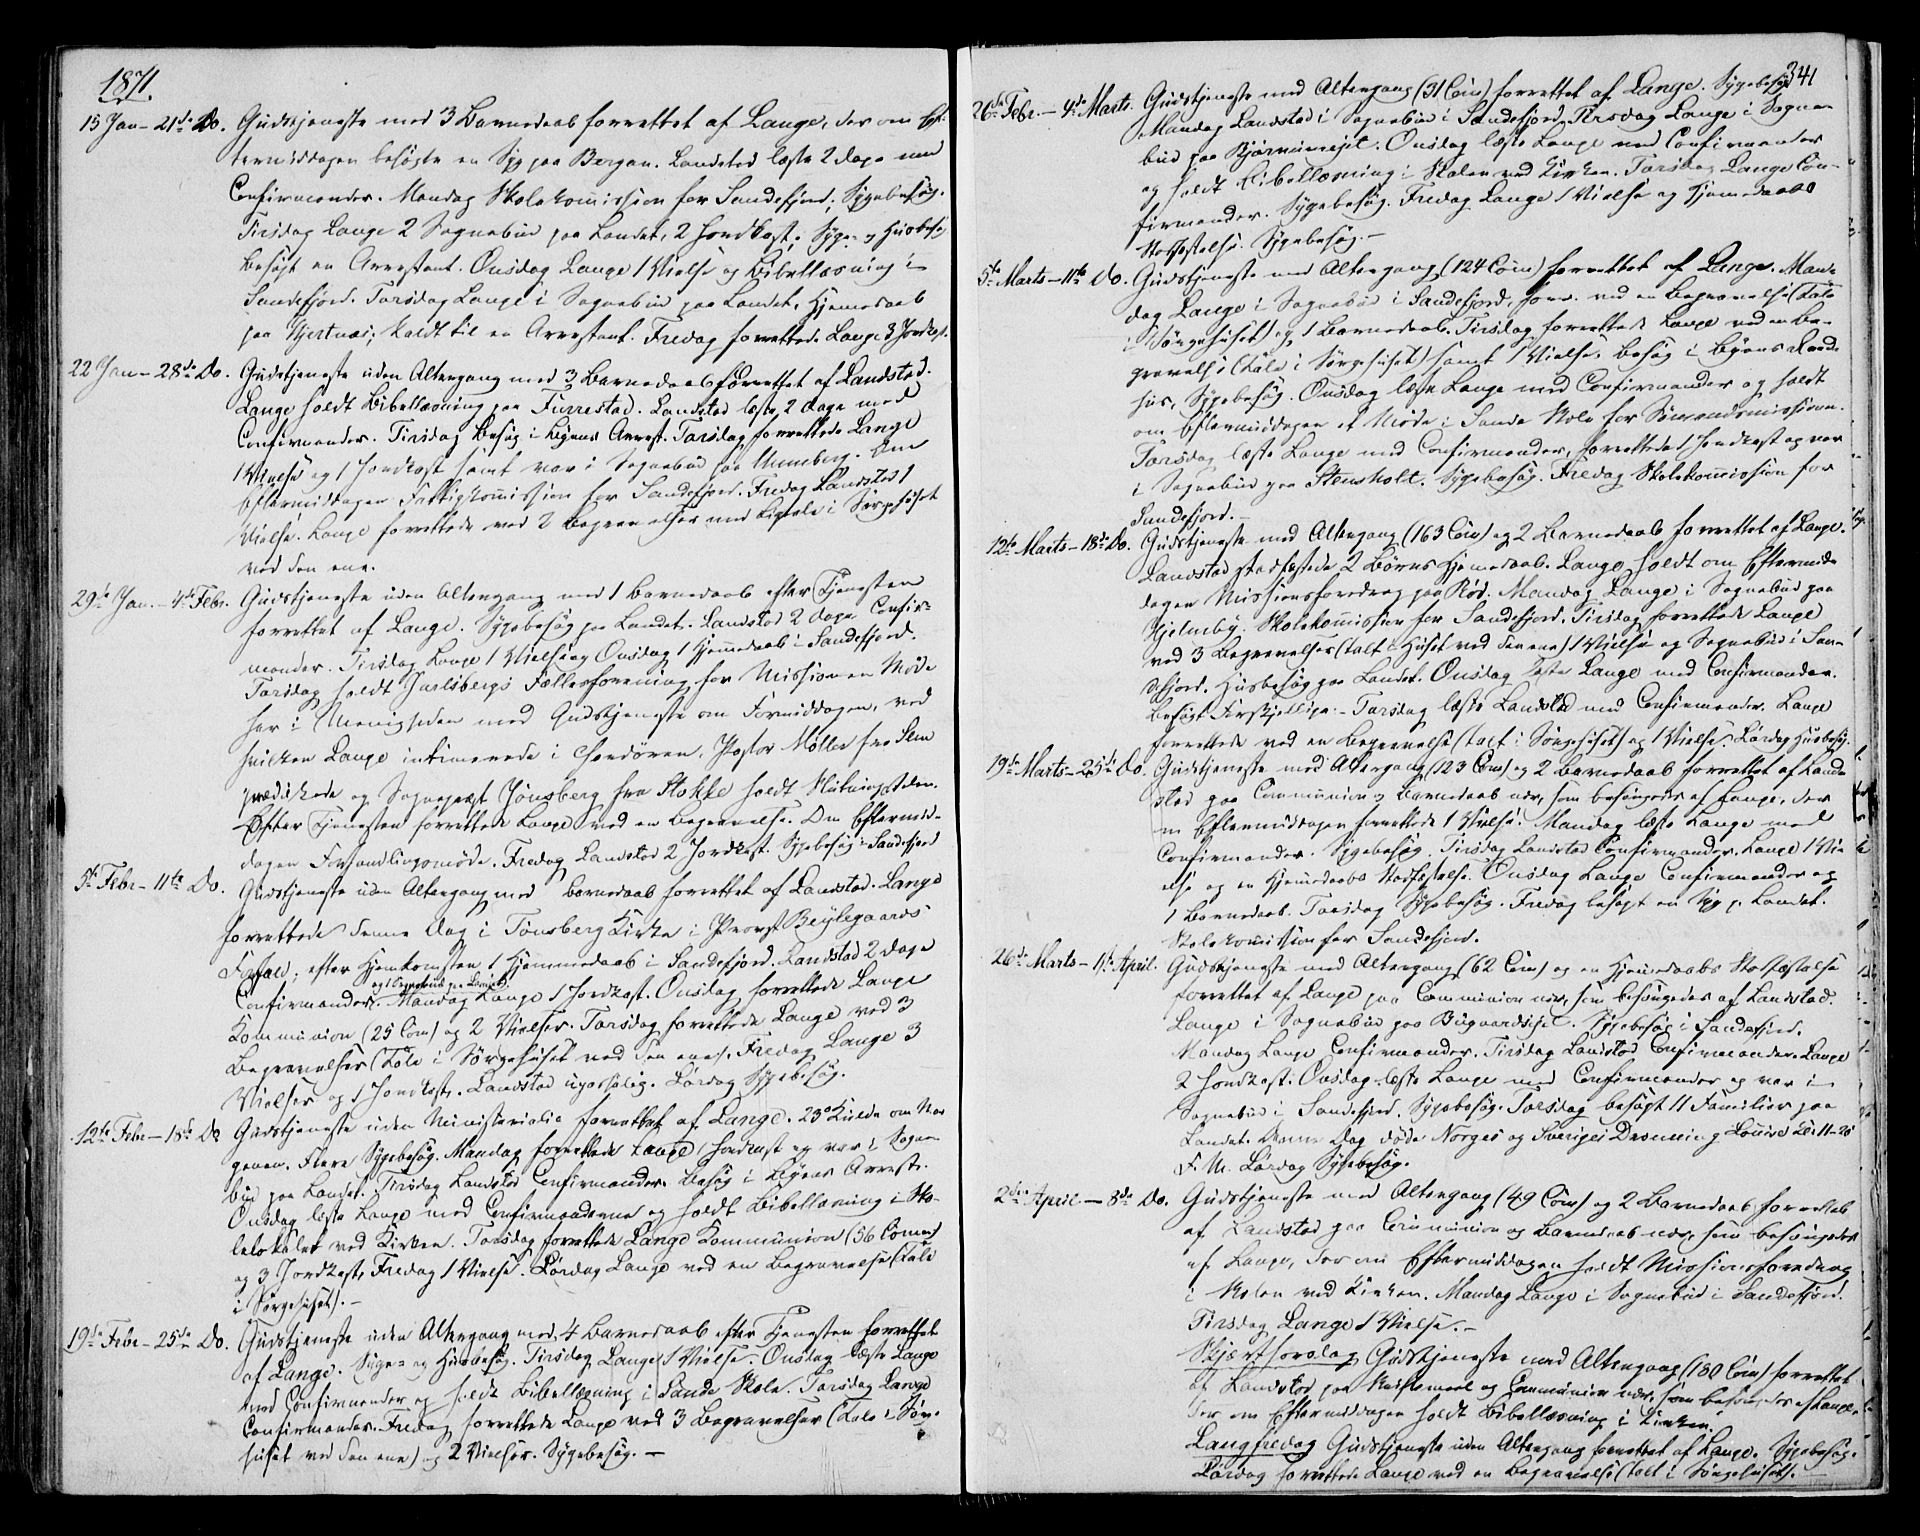 1871.
15 Jan – 21de Do. Gudstjeneste med 3 Barnedaab forrettet af Lange, der om Ef-
termiddagen besøgte en Syg paa Bergan. Landstad læste 2 Dage med
Confirmander. Mandag Skolekomission for Sandefjord; Sygebesøg.
Tirsdag Lange 2 Sognebud paa Landet, 2 Jordkast; Syge- og Husbesøg
besøgt en Arrestant. Onsdag Lange 1 Vielse og Bibellæsning i
Sandefjord. Torsdag Lange i Sognebud paa Landet, Hjemmedaab
paa Hjertnæs; kaldt til en Arrestant. Fredag forrettede Lange 3 Jordkast.
22 Jan – 28de Do. Gudstjeneste uden Altergang med 3 Barnedaab forrettet af Landstad.
Lange holdt Bibellæsning paa Furrestad. Landstad læste 2 Dage med
Confirmander. Tirsdag Besøg i Byens Arrest. Torsdag forrettede Lange
1 Vielse og 1 Jordkast samt var i Sognebud paa Unneberg. Om
Eftermiddagen Fattigkommission for Sandefjord. Fredag Landstad 1
Vielse. Lange forrettede ved 2 Begravelser med Ligtale i Sørgehuset
ved den ene.
29de Jan. – 4de Febr. Gudstjeneste uden Altergang med 1 Barnedaab efter Tjenesten
forrettet af Lange. Sygebesøg paa Landet. Landstad 2 Dage Confir-
mander. Tirsdag Lange 1 Vielse og Onsdag 1 Hjemmedaab i Sandefjord.
Torsdag holdt Jarlsbergs Fællesforening for Mission en Møde
her i Menigheden med Gudstjeneste om Formiddagen, ved
hvilken Lange intimerede i Chordøren, Pastor Møller fra Slem
prædikede og Sognepræst Jonsberg fra Stokke holdt Slutningstalen.
Efter Tjenesten forrettede Lange ved en Begravelse. Om Eftermid-
dagen Forhandlingsmøde. Fredag Landstad 2 Jordkast. Sygebesøg i Sandefjord
5te Febr – 11te Do. Gudstjeneste uden Altergang med Barnedaab forrettet af Landstad. Lange
forrettede denne Dag i Tønsberg Kirke i Provst Bejlegaards
Forfald; efter Hjemkomsten 1 Hjemmedaab i Sandefjord. Landstad 2 Dage
og 1 Sognebud paa Landet
Confirmander. Mandag Lange 1 Jordkast. Onsdag forrettede Lange
Kommunion (25 Com) og 2 Vielser. Torsdag forrettede Lange ved 3
Begravelser (Tale i Sørgehuset ved den ene). Fredag Lange 3
Vielser og 1 Jordkast. Landstad upasselig. Lørdag Sygebesøg.
12te Febr – 18de Do Gudstjeneste uden Ministerialie forrettet af Lange. 23° Kulde om Mor
genen. Flere Sygebesøg. Mandag forrettede Lange 1 Jordkast og var i Sogne-
bud paa Landet. Tirsdag Landstad Confirmander. Besøg i Byens Arrest.
Onsdag læste Lange med Confirmanderne og holdt Bibellæsning i Sko-
lelokalet ved Kirken. Torsdag forrettede Lange Kommunion (56 Comm)
og 3 Jordkast, Fredag 1 Vielse. Lørdag Lange ved en Begravelse (Tale
i Sørgehuset). –
19de Febr – 25de Do. Gudstjeneste uden Altergang med 4 Barnedaab efter Tjenesten forrettet
af Lange. Syge- og Husbesøg. Tirsdag Lange 1 Vielse. Onsdag læste Lange
med Confirmander og holdt Bibellæsning i Sande Skole. Torsdag Lange
Confirmander. Fredag forrettede Lange ved 3 Begravelser (Tale i Sør-
huset ved den ene) og 2 Vielser. Sygebesøg. –
341
26de Febr – 4de Marts. Gudstjeneste med Altergang (31 Com) forrettet af Lange. Sygebesøg
Mandag Landstad i Sognebud i Sandefjord, Tirsdag Lange i Sogne-
bud paa Bjørnumejet. Onsdag læste Lange med Confirmander
og holdt Bibellæsning i Skolen ved Kirken. Torsdag Lange Con-
firmander. Sygebesøg. Fredag Lange 1 Vielse og Hjemmedaabs
Stadfæstelse. Sygebesøg. –
5te Marts – 11te Do. Gudstjeneste med Altergang (124 Com) forrettet af Lange. Man-
dag Lange i Sognebud i Sandefjord, forr. ved en Begravelse (Tale
i Sørgehuset) og 1 Barnedaab. Tirsdag forrettede Lange ved en Be-
gravelse (Tale i Sørgehuset) samt 1 Vielse. Besøg i Byens Raad-
hus, Sygebesøg. Onsdag læste Lange med Confirmander og holdt
om Eftermiddagen et Møde i Sande Skole for Sømandsmissionen.
Torsdag læste Lange med Confirmander, forrettede 1 Jordkast og var
i Sognebud paa Stensholt. Sygebesøg. Fredag Skolekommission for
Sandefjord. –
12te Marts – 18de Do. Gudstjeneste med Altergang (163 Com) og 2 Barnedaab forrettet af Lange.
Landstad stadfæstede 2 Børns Hjemmedaab. Lange holdt om Eftermid-
dagen Missionsforedrag paa Rød. Mandag Lange i Sognebud paa
Hjelmby. Skolekommission for Sandefjord. Tirsdag forrettede Lange
ved 3 Begravelser (talt i Huset ved den ene) 1 Vielse og Sognebud i San-
defjord. Husbesøg paa Landet. Onsdag læste Lange med Confirmander.
Besøgt Forskjellige. – Torsdag læste Landstad med Confirmander. Lange
forrettede ved en Begravelse (talt i Sørgehuset) og 1 Vielse. Lørdag Husbesøg.
19de Marts – 25de Do. Gudstjeneste med Altergang (123 Com) og 2 Barnedaab forrettet af Land-
stad paa Communion og Barnedaab nær, som besørgedes af Lange, der
om Eftermiddagen forrettede 1 Vielse. Mandag læste Lange med
Confirmander. Sygebesøg. Tirsdag Landstad Confirmander. Lange 1 Vi-
else og en Hjemmedaabs Stadfæstelse. Onsdag Lange Confirmander og
1 Barnedaab. Torsdag Sygebesøg. Fredag besøgt en Syg p. Landet.
Skolekomission for Sandefjord.
26de Marts – 1ste April. Gudstjeneste med Altergang (62 Com) og en Hjemmedaabs Stadfæstelse
forrettet af Lange paa Communion nær, som besørgedes af Landstad.
Lange i Sognebud paa Bugaardsejet. Sygebesøg i Sandefjord.
Mandag Lange Confirmander. Tirsdag Landstad Confirmander. Lange
2 Jordkast. Onsdag læste Lange med Confirmander og var i
Sognebud i Sandefjord. Sygebesøg. Torsdag besøgt 11 Familier paa
Landet. Denne Dag døde Norges og Sveriges Dronning Louise Kl: 11-20
F. M. Lørdag Sygebesøg.
2den April – 8de Do. Gudstjeneste med Altergang (49 Com) og 2 Barnedaab forrettet
af Landstad paa Communion og Barnedaab nær, som besørgedes
af Lange, der om Eftermiddagen holdt Missionsforedrag
i Skolen ved Kirken. Mandag Lange i Sognebud i Sandefjord.
Tirsdag Lange 1 Vielse. –
Skjærthorsdag Gudstjeneste med Altergang (180 Com) forrettet
af Landstad paa Skriftemaal og Communion nær, som besørgedes af Lange,
der om Eftermiddagen holdt Bibellæsning i Kirken.
Langfredag Gudstjeneste uden Altergang forrettet af Lange. Sygebesøg.
Lørdag forrettede Lange ved en Begravelse (talt i Sørgehuset). –